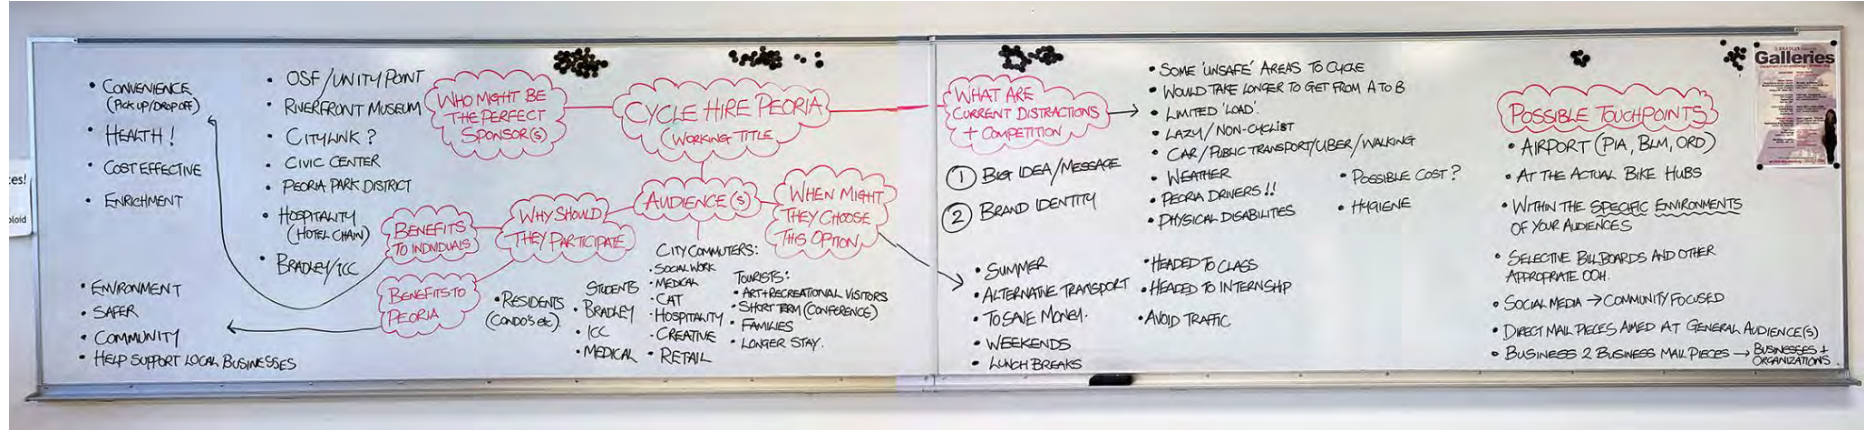 ces!
oloid
• CONVENIENCE
(PICK UP/DROP OFF)
• HEALTH!
• COST EFFECTIVE
• ENRICHMENT
• ENVIRONMENT
• SAFER
• COMMUNITY
• HELP SUPPORT LOCAL BUSINESSES
• OSF/UNITY POINT
• RIVERFRONT MUSEUM
• CITYLINK?
• CIVIC CENTER
• PEORIA PARK DISTRICT
• HOSPITALITY
(HOTEL CHAIN)
• BRADLEY/ICC
WHO MIGHT BE
THE PERFECT
SPONSOR(S)
CYCLE HIRE PEORIA
(WORKING TITLE)
BENEFITS
TO INDIVIDUALS
WHY SHOULD
THEY PARTICIPATE
AUDIENCE(S)
WHEN MIGHT
THEY CHOOSE
THIS OPTION
BENEFITS TO
PEORIA
• RESIDENTS
(CONDO'S etc)
STUDENTS
• BRADLEY
• ICC
• MEDICAL
CITY COMMUTERS:
• SOCIAL WORK
• MEDICAL
• CAT
• HOSPITALITY
• CREATIVE
• RETAIL
TOURISTS:
• ART+RECREATIONAL VISITORS
• SHORT TERM (CONFERENCE)
• FAMILIES
• LONGER STAY.
WHAT ARE
CURRENT DISTRACTIONS
+ COMPETITION
① BIG IDEA/MESSAGE
② BRAND IDENTITY
• SOME 'UNSAFE' AREAS TO CYCLE
• WOULD TAKE LONGER TO GET FROM A TO B
• LIMITED 'LOAD'.
• LAZY/NON-CYCLIST
• CAR/PUBLIC TRANSPORT/UBER/WALKING
• WEATHER
• PEORIA DRIVERS!!
• PHYSICAL DISABILITIES
• POSSIBLE COST?
• HYGIENE
• SUMMER
• ALTERNATIVE TRANSPORT
• TO SAVE MONEY.
• WEEKENDS
• LUNCH BREAKS
• HEADED TO CLASS
• HEADED TO INTERNSHIP
• AVOID TRAFFIC
POSSIBLE TOUCHPOINTS
• AIRPORT (PIA, BLM, ORD)
• AT THE ACTUAL BIKE HUBS
• WITHIN THE SPECIFIC ENVIRONMENTS
OF YOUR AUDIENCES
• SELECTIVE BILLBOARDS AND OTHER
APPROPRIATE OOH.
• SOCIAL MEDIA → COMMUNITY FOCUSED
• DIRECT MAIL PIECES AIMED AT GENERAL AUDIENCE(S)
• BUSINESS 2 BUSINESS MAIL PIECES → BUSINESSES +
ORGANIZATIONS
Galleries